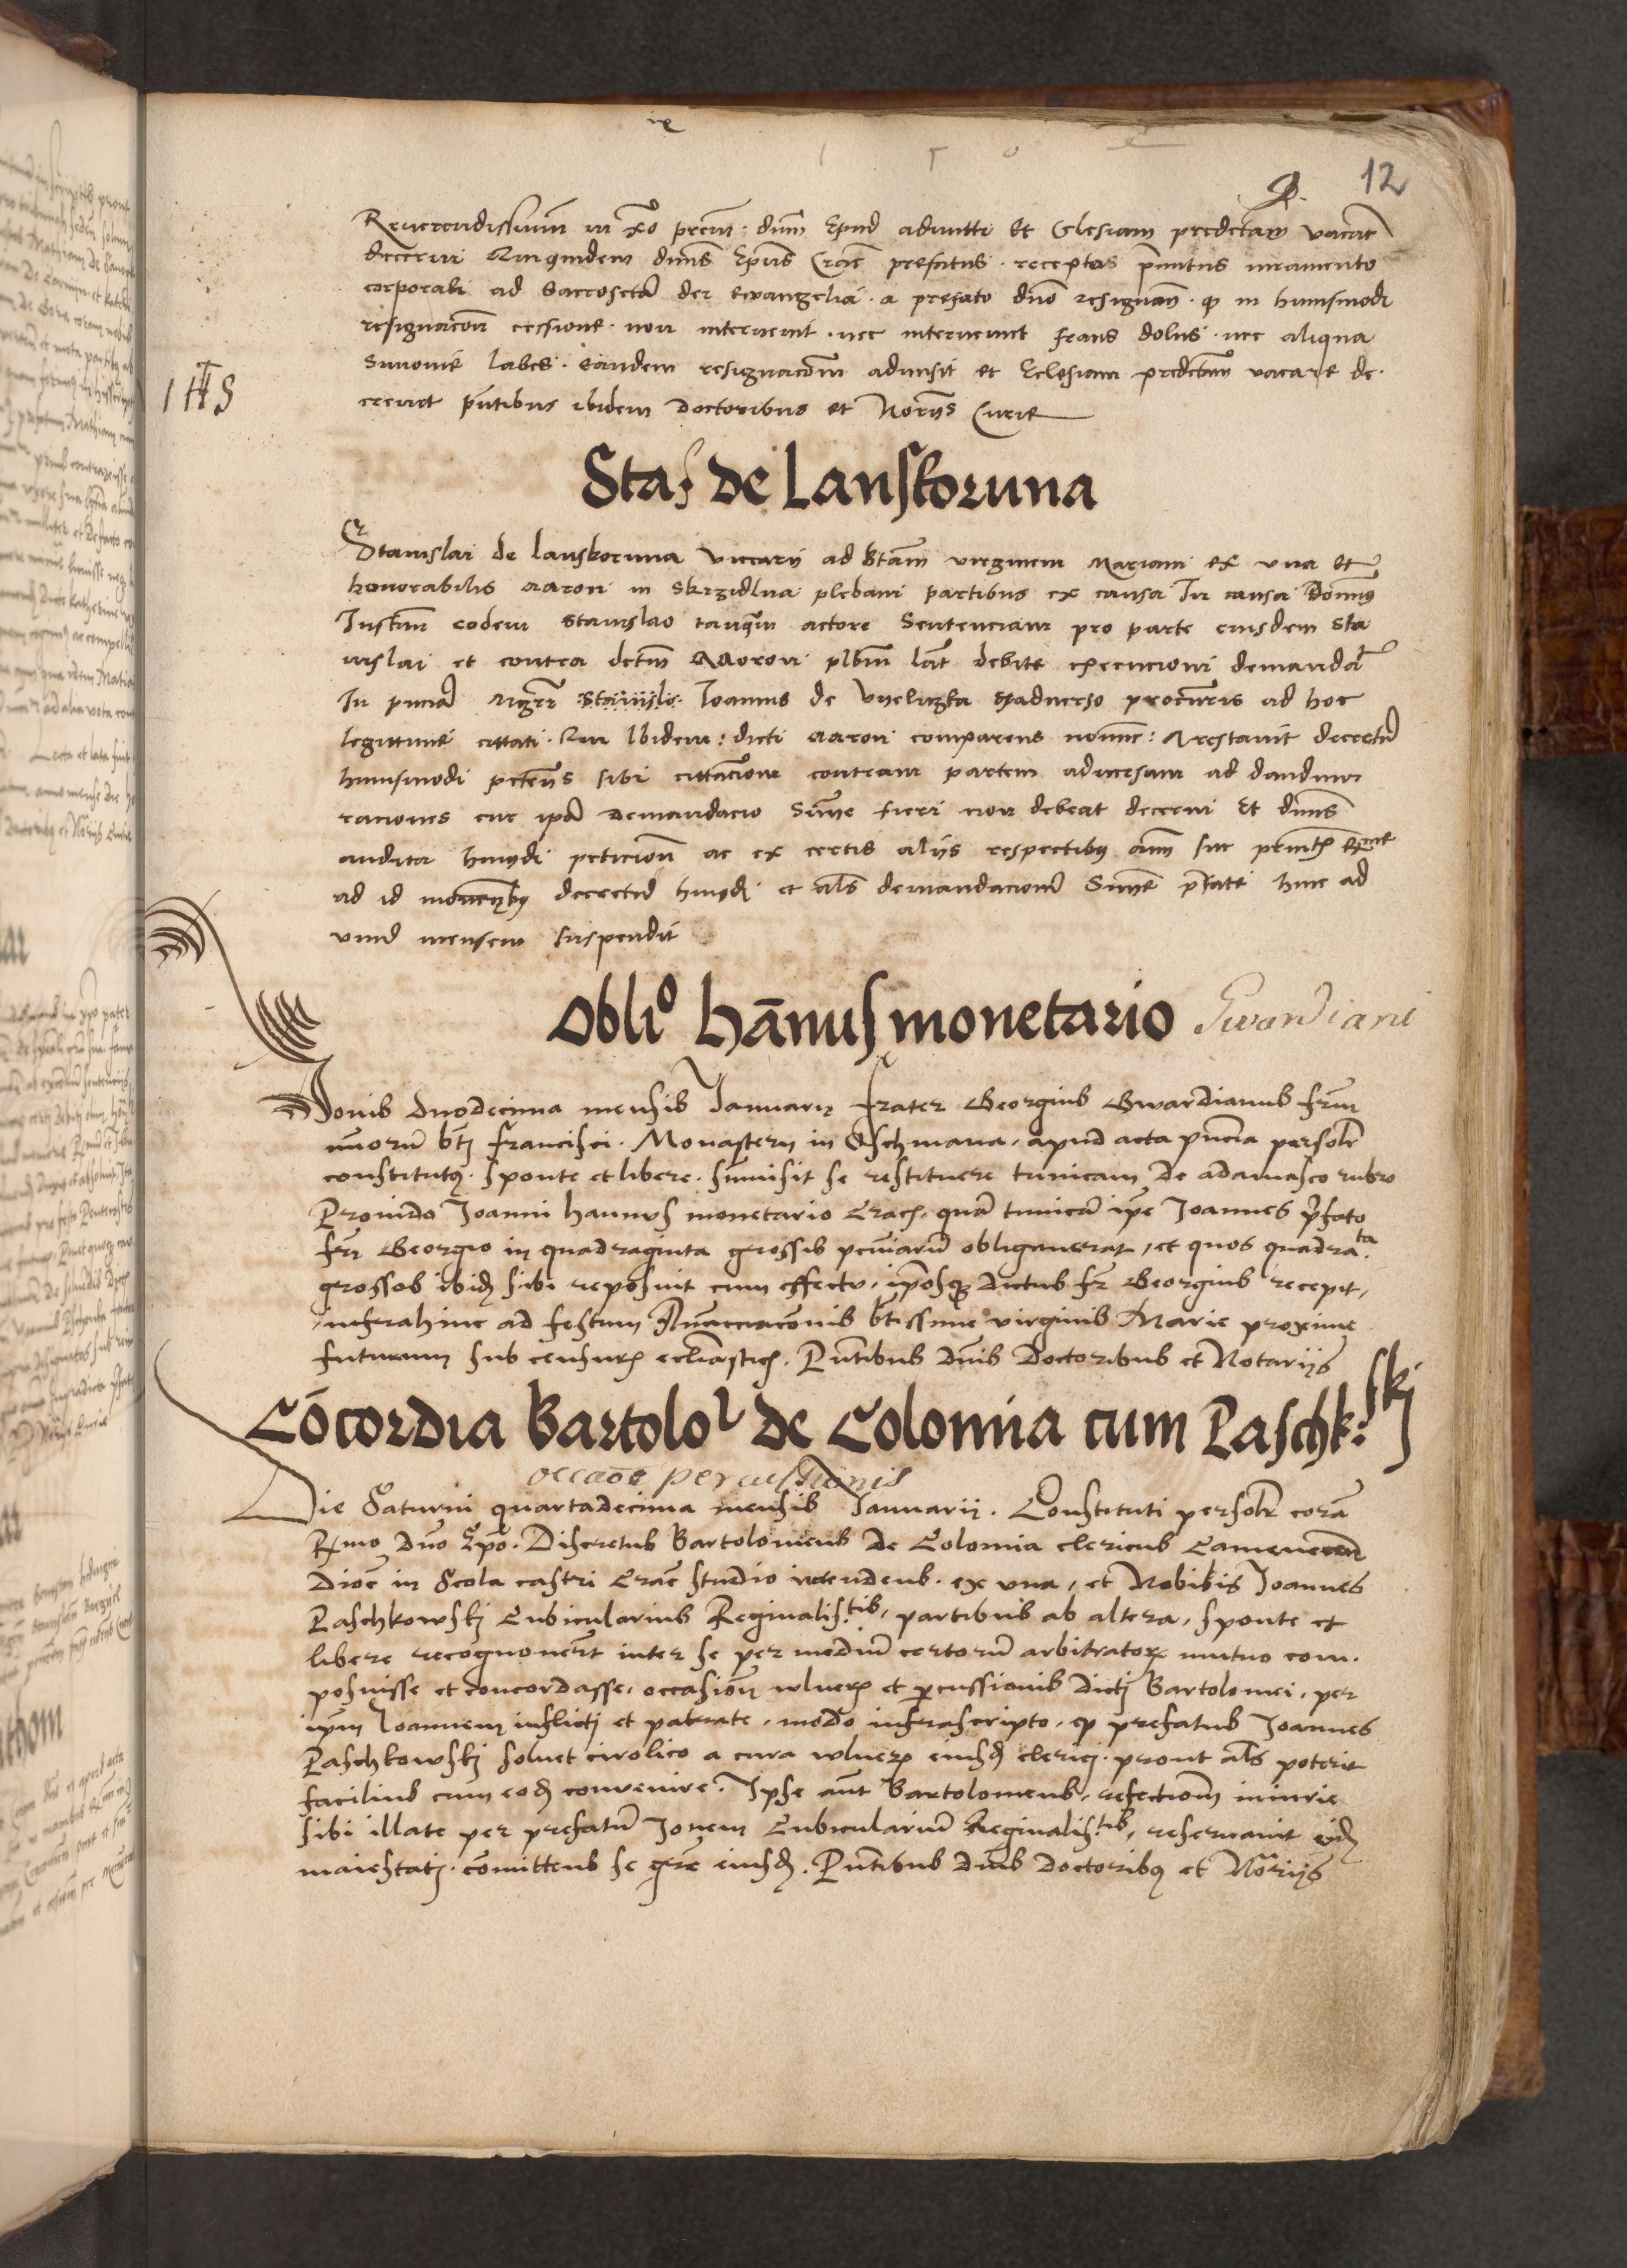 12
Reuerendissimū in xpo prem: dnm Epūm admitti et Eclesiam predictam vacare
decerni Quiquidem dnus Epus Crac prefatus receptis primitus iuramento
corporali ad Sacrosctā dei ewangeliā a prefato dno resignan ꝙ in huiusmodi
resignacoū cessione non interuenit nec interueniet fraus dolus nec aliqua
Simonie labes eandem resignacōm admisit et Eclesiam predictam vacare de
creuit pn̄tibus ibidem Doctoribus et Norijs Curie
IHS
Sta: de Lanskoruna
Stanislai de lanskoruna vicarij ad Btam virginem Mariam ex vna et
honorabilis Aaron in Skrzidlna plebani partibus ex causa In causa
Instan eodem Stanislao tanqm actore Sentenciam pro parte eiusdem Sta
nislai et contra dctm Aaron plbm lat debite execucioni demandar
In pncia Mgri Stanislo Ioannis de ex aduerso procuris ad hoc
legittime cittati Qui Ibidem dicti Aaron comparens noie: Arestauit decretū
huiusmodi petens sibi cittacione contram partem aduersam ad dandum
raciones cur ipa Demandacio Sume fieri non debeat decerni Et dnus
audita hmodi peticion ac ex certis alijs respectibus aim sue
ad id mouentibus decretū hmodi et als demandacionē Sunie pfate hinc ad
vnū mensem suspendit
Obliᵒ hānus monetario Gwardiani
Iouis duodecima mensis Ianuarij frater Georgius Gwardianus frm
morū bti francisci Monasterij in Oschmana, apud acta pncia persolr
constitutus sponte et libere submisit se restituere tunicam de adamasco rubro
Prouido Ioanni hannus monetario Crac, quā tunicā ipe Ioannes pfato
fri Georgio in quadraginta grossis pecuniarū obligauerat, et quos quadraᵗᵃ.
grossos ibidē sibi reposuit cum effectu, iposqȝ dictus fr Georgius recepit,
infra hinc ad festum Anūcciacōnis btissime virginis Marie proxime
futurum sub censuris eccliastic. Pn̄tibus dnis Doctoribus et Notarijs
Cōcordia Bartoloˡ de Colomia cum Paschk:skj
occaōe percussionis
Die Saturni quartadecima mensis Ianuarij. Constituti persolr corā
Rmo dno Epo. Discretus Bartolomeus de Colomia clericus Camenecen
Dioc in Scola castri Crac studio intendens ex vna, et Nobilis Ioannes
Paschkowskj Cubicularius Reginalis.ᵗⁱˢ, partibus ab altera, sponte et
libere recognouert inter se per mediū certorū arbitratorꝝ mutuo com
posuisse et concordasse, occasion wlneris et pcussionis dicti Bartolomei, per
ipm Ioannem inflicti et patrate, modo infrascripto, ꝙ prefatus Ioannes
Paschkowskj soluet cirolico a cura wlneris eiusdē clerici prout als poterit
facilius cum eodē convenire. Ipse aut Bartolomeus, refectionē iniurie
sibi illate per prefatū Ionem Cubiculariū Reginalis.ᵗⁱˢ, reseruauit eidē
maiestati comittens se gre eiusdē. Pn̄tibus dnis Doctoribus et Norijs